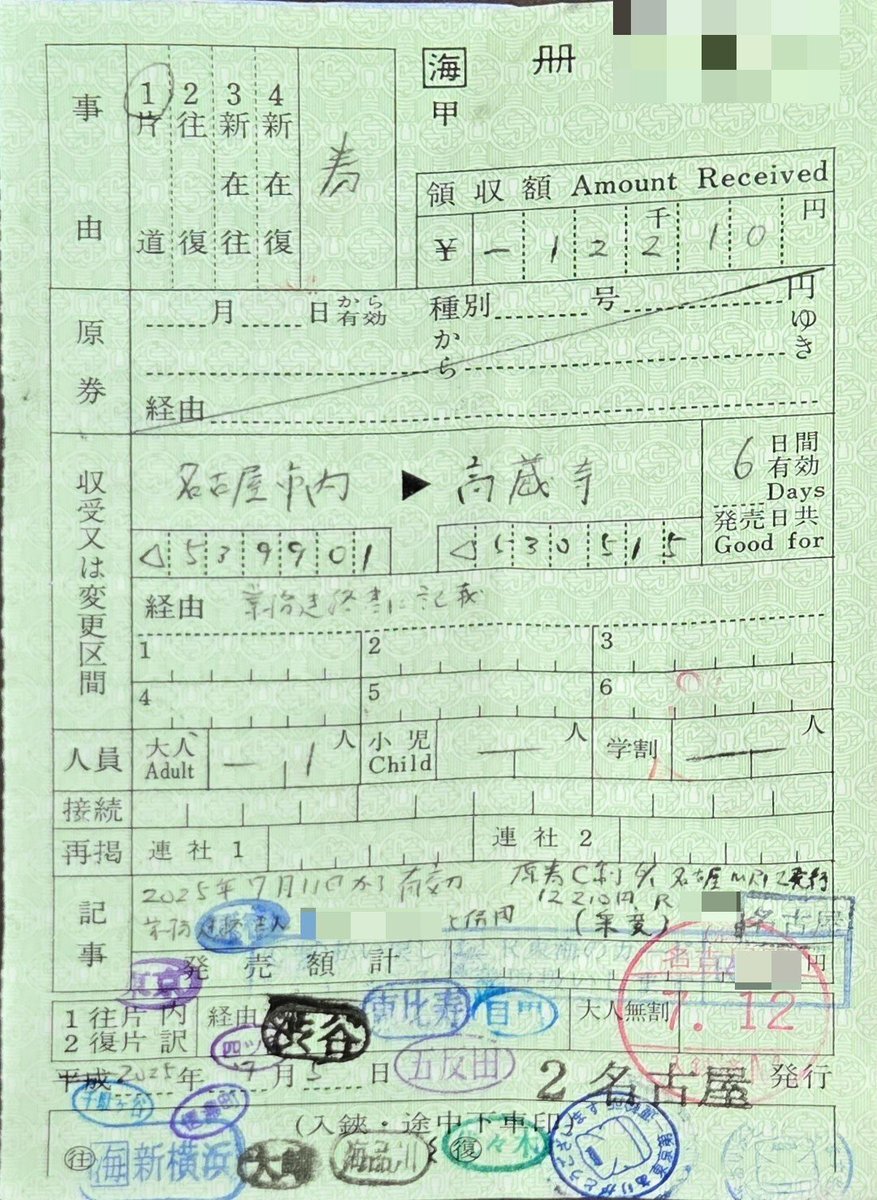 海 冊
甲
事由
1 片道
2 往復
3 新在往
4 新在復
領収額 Amount Received
¥ - 1 2 2千 1 0 円
原券
月 日から有効 種別 号 円
から ゆき
経由
収受又は変更区間
名古屋市内 ▶ 高蔵寺
6 日間有効 Days
発売日共 Good for
◁ 5 3 9 9 0 1
◁ 5 3 0 5 1 5
経由
1 2 3
4 5 6
人員 大人 Adult - 1 人 小児 Child — 人 学割 — 人
接続
再掲 連社1 連社2
記事
2025年7月11日から有効
12210円
(乗変)
名古屋
発売額計 円
東京
1往片内
2復片訳
経由
渋谷
恵比寿
目門
大人無割
7.12
四ツ
五反田
平成 2025年 7月5日
2 名古屋 発行
千駄ヶ谷
信濃町
(入鋏・途中下車印)
往 海新横浜 大崎 海品川 復 代々木